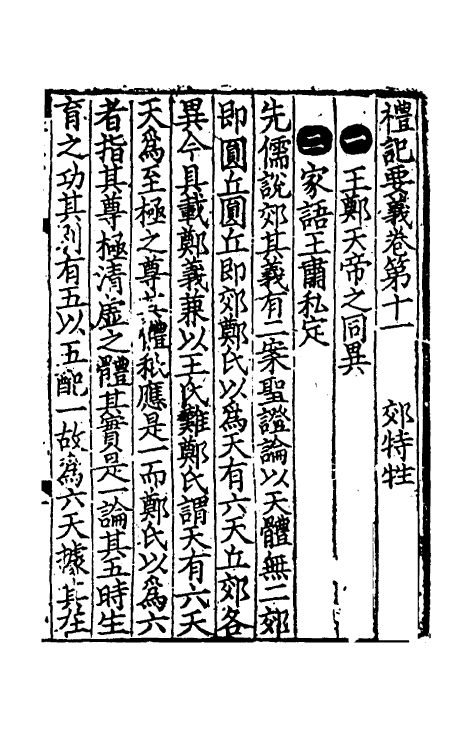 禮記要義卷第十一 郊特牲
一 王鄭天帝之同異
二 家語王肅私定
先儒說郊其義有二案聖證論以天體無二郊
即圓丘圓丘即郊鄭氏以為天有六天丘郊各
異今具載鄭義兼以王氏難鄭氏謂天有六天
天為至極之尊其體秖應是一而鄭氏以為六
者指其尊極清虛之體其實是一論其五時生
育之功其別有五以五配一故為六天據其在